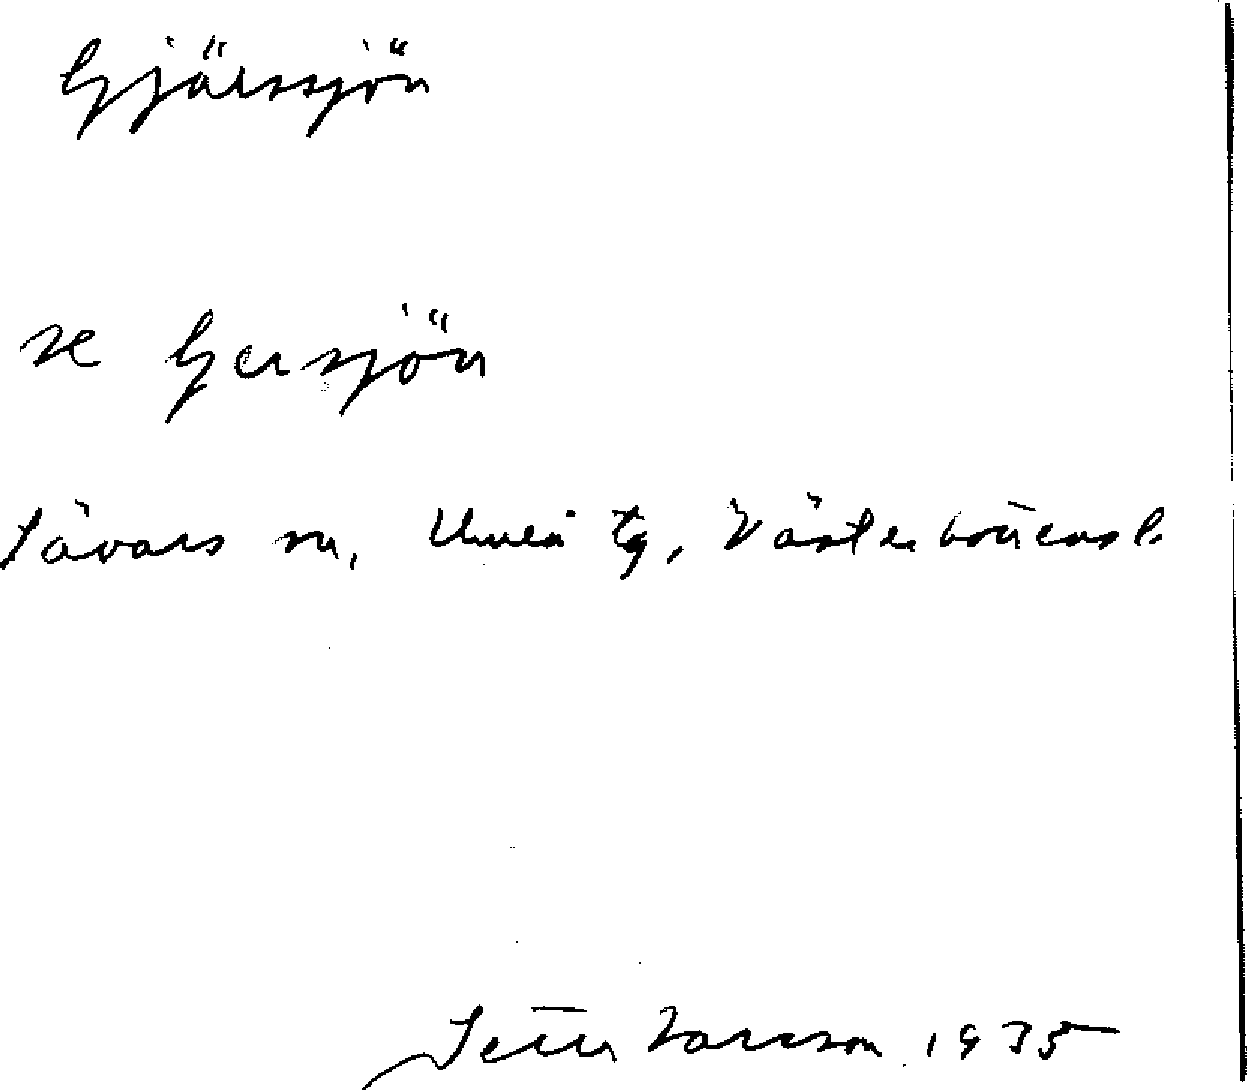 Gjärssjön
se Gersjön
Sävars sn, Umeå tg, Västerbottensl.
Petter Larsson 1935